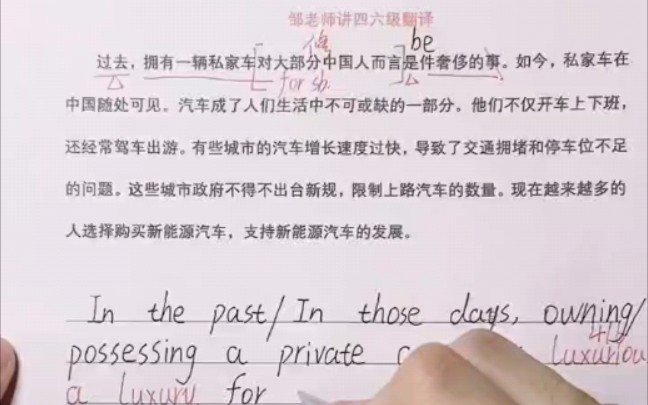 邹老师讲四六级翻译
修
be
过去，拥有一辆私家车[对大部分中国人而言]是件奢侈的事。如今，私家车在
for sb.
中国随处可见。汽车成了人们生活中不可或缺的一部分。他们不仅开车上下班，
还经常驾车出游。有些城市的汽车增长速度过快，导致了交通拥堵和停车位不足
的问题。这些城市政府不得不出台新规，限制上路汽车的数量。现在越来越多的
人选择购买新能源汽车，支持新能源汽车的发展。
In the past/In those days, owning/
possessing a private luxuriou
a luxury for